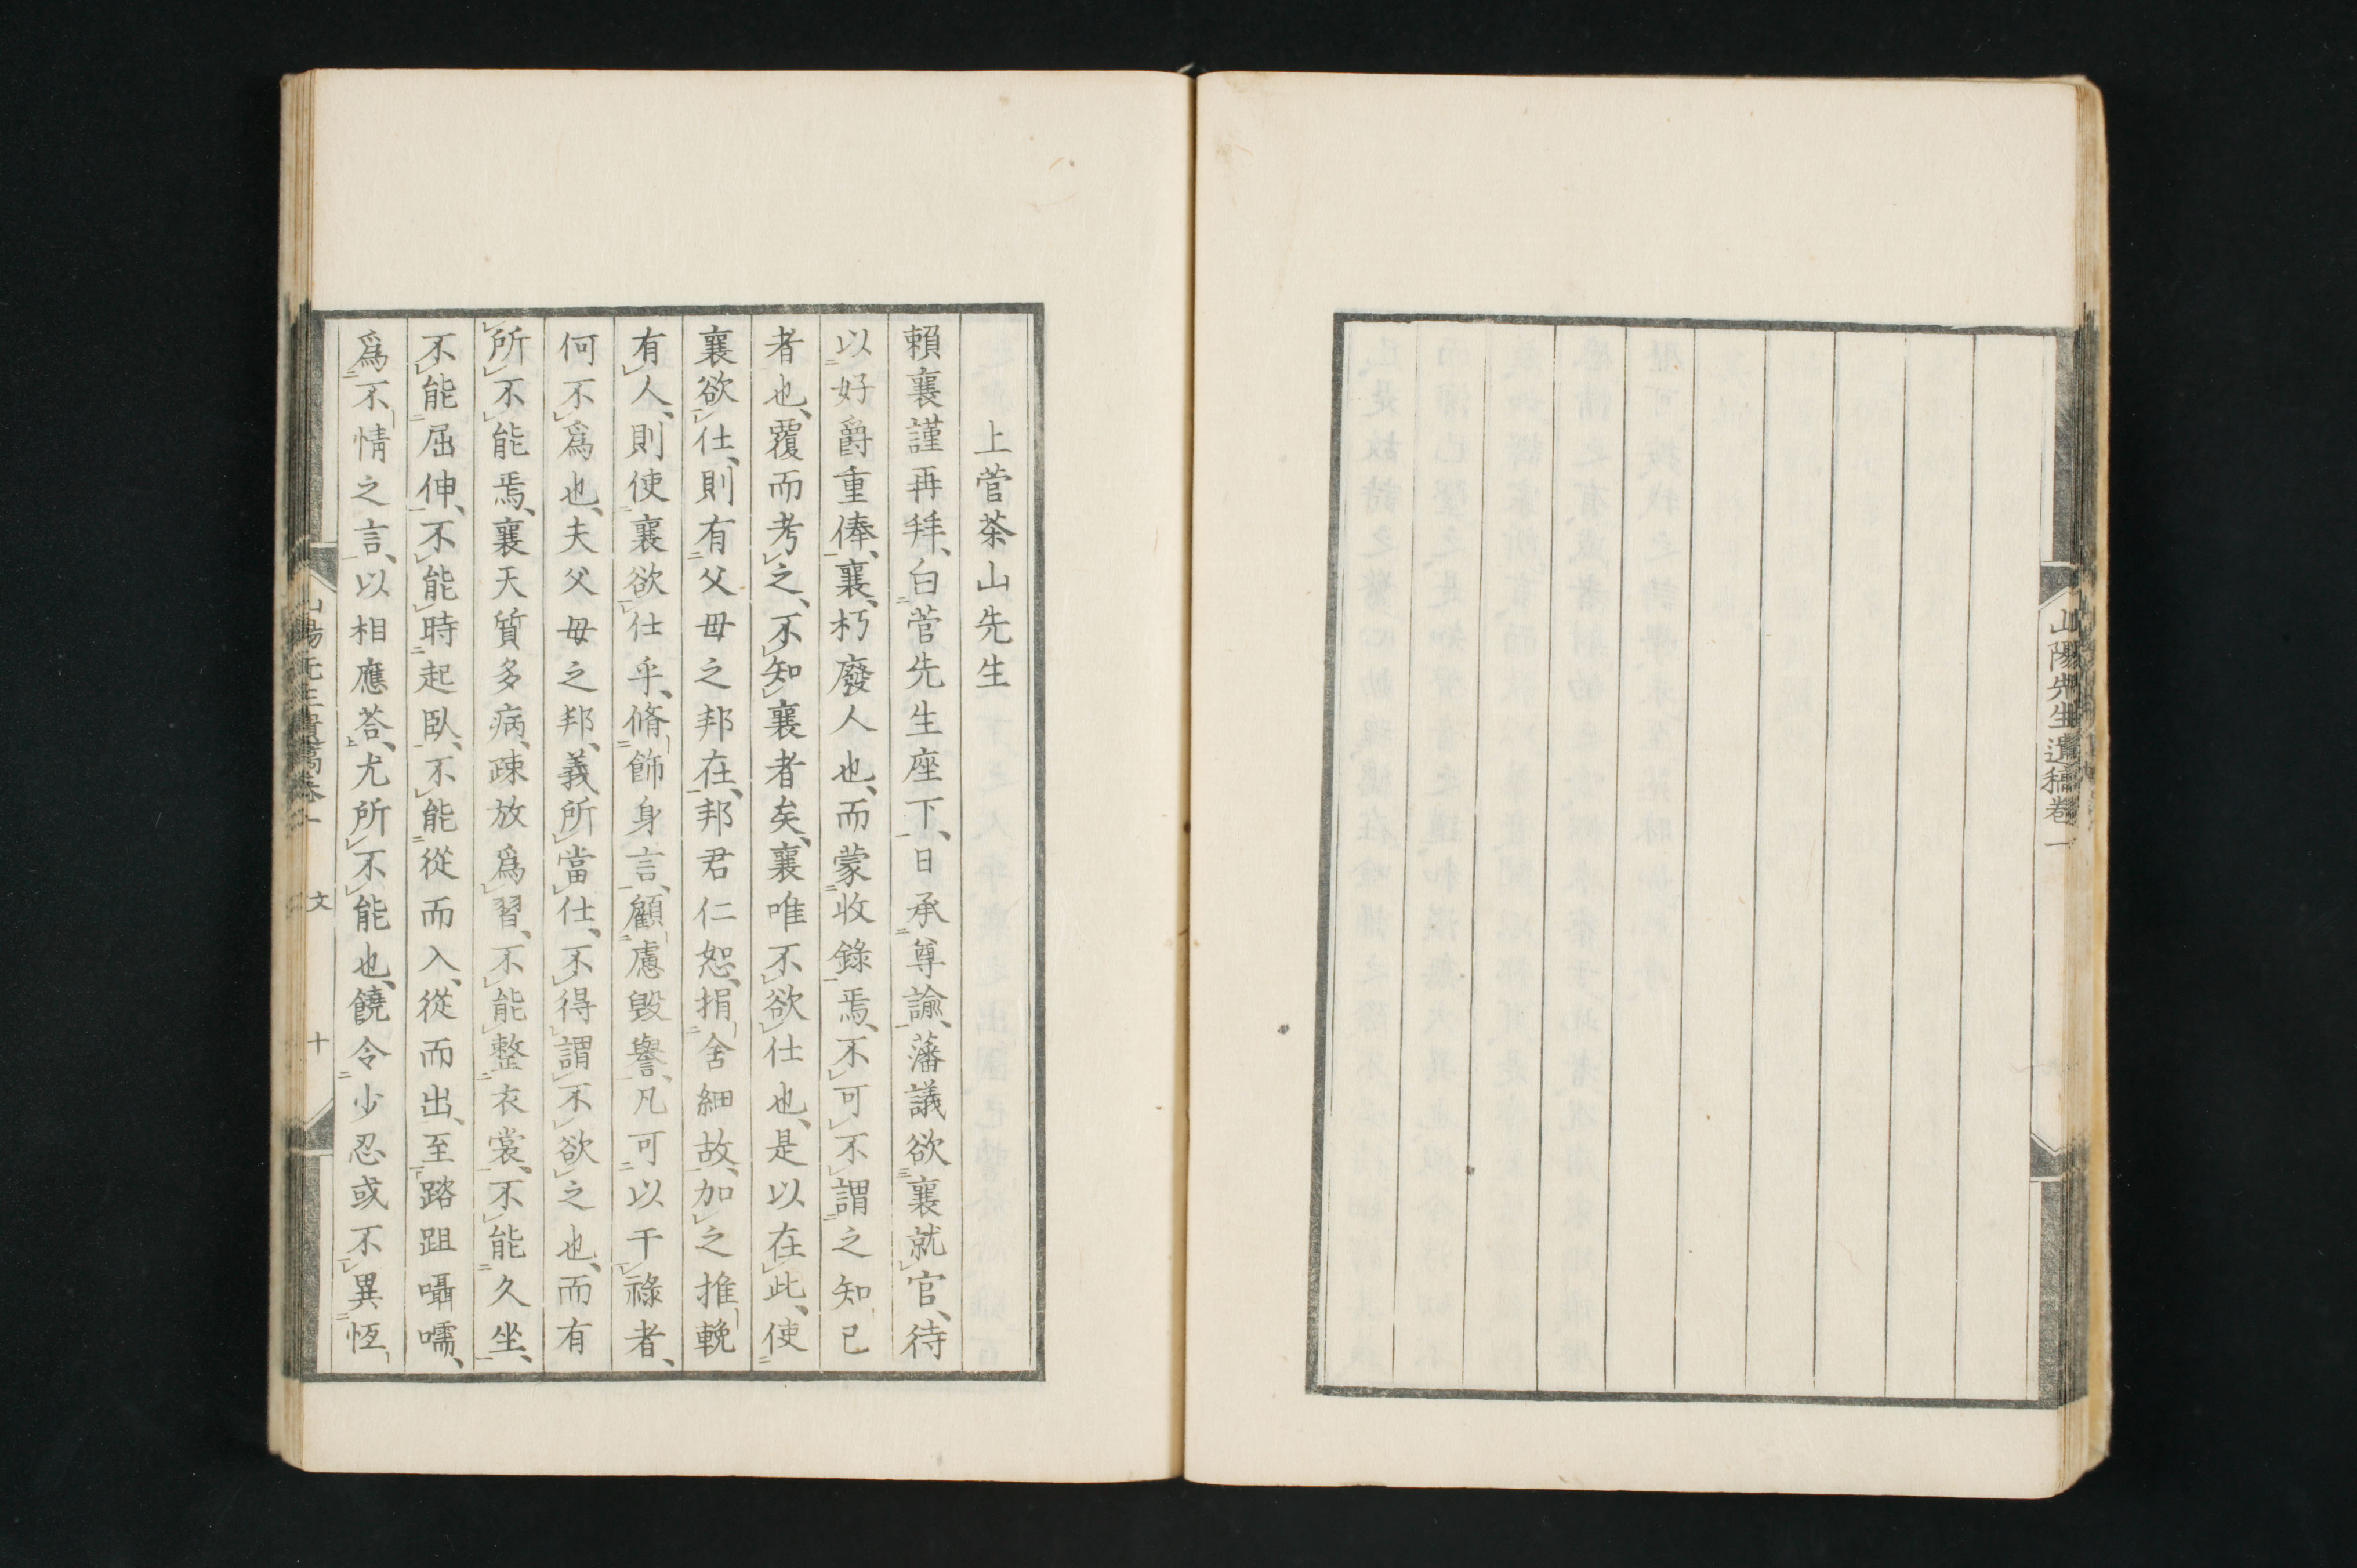 山陽先生遺稿卷一
上菅茶山先生
賴襄謹再拜、白菅先生座下、日承尊諭、藩議欲襄就官、待
以好爵重俸、襄朽廢人也、而蒙收錄焉、不可不謂之知己
者也、覆而考之、不知襄者矣、襄唯不欲仕也、是以在此、使
襄欲仕、則有父母之邦在、邦君仁恕、捐舍細故、加之推輓
有人、則使襄欲仕乎、脩飾身言、顧慮毀譽、凡可以干祿者、
何不爲也、夫父母之邦、義所當仕、不得謂不欲之也、而有
所不能焉、襄天質多病、疎放爲習、不能整衣裳、不能久坐、
不能屈伸、不能時起臥、不能從而入、從而出、至踏跙囁嚅、
爲不情之言、以相應荅、尤所不能也、饒令少忍或不異恆
山陽先生遺稿卷一 文 十